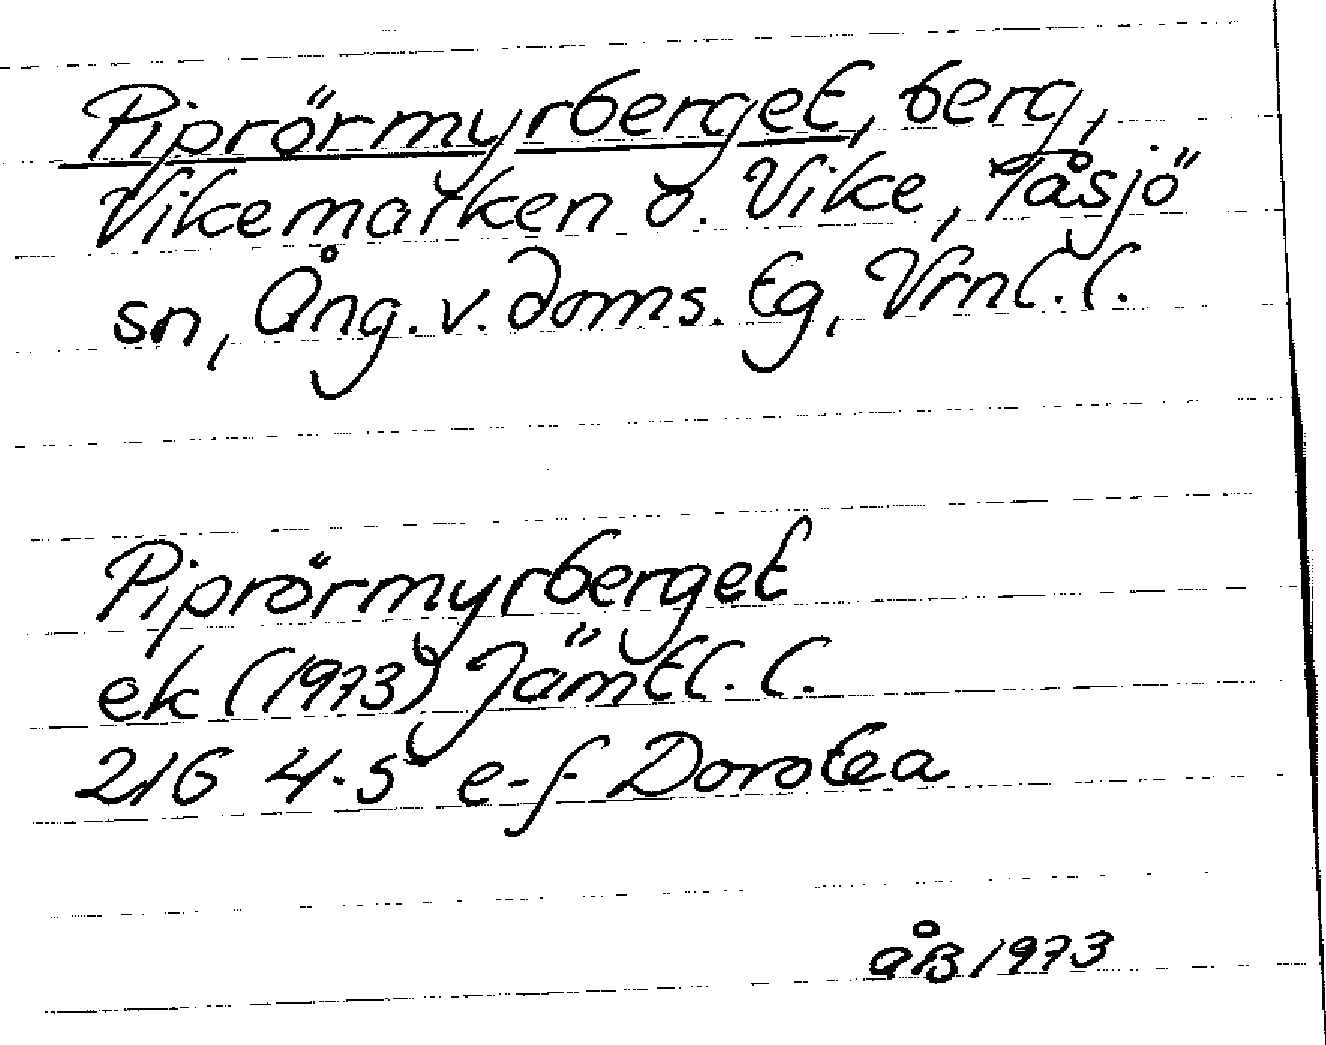 Piprörmyrberget, berg,
Vikemarken o. Vike, Tåsjö
sn, Ång. v. doms. tg, Vrnl. l.
Piprörmyrberget
ek (1973) Jämtl. l.
21G 4-5 e-f Dorotea
åB 1973